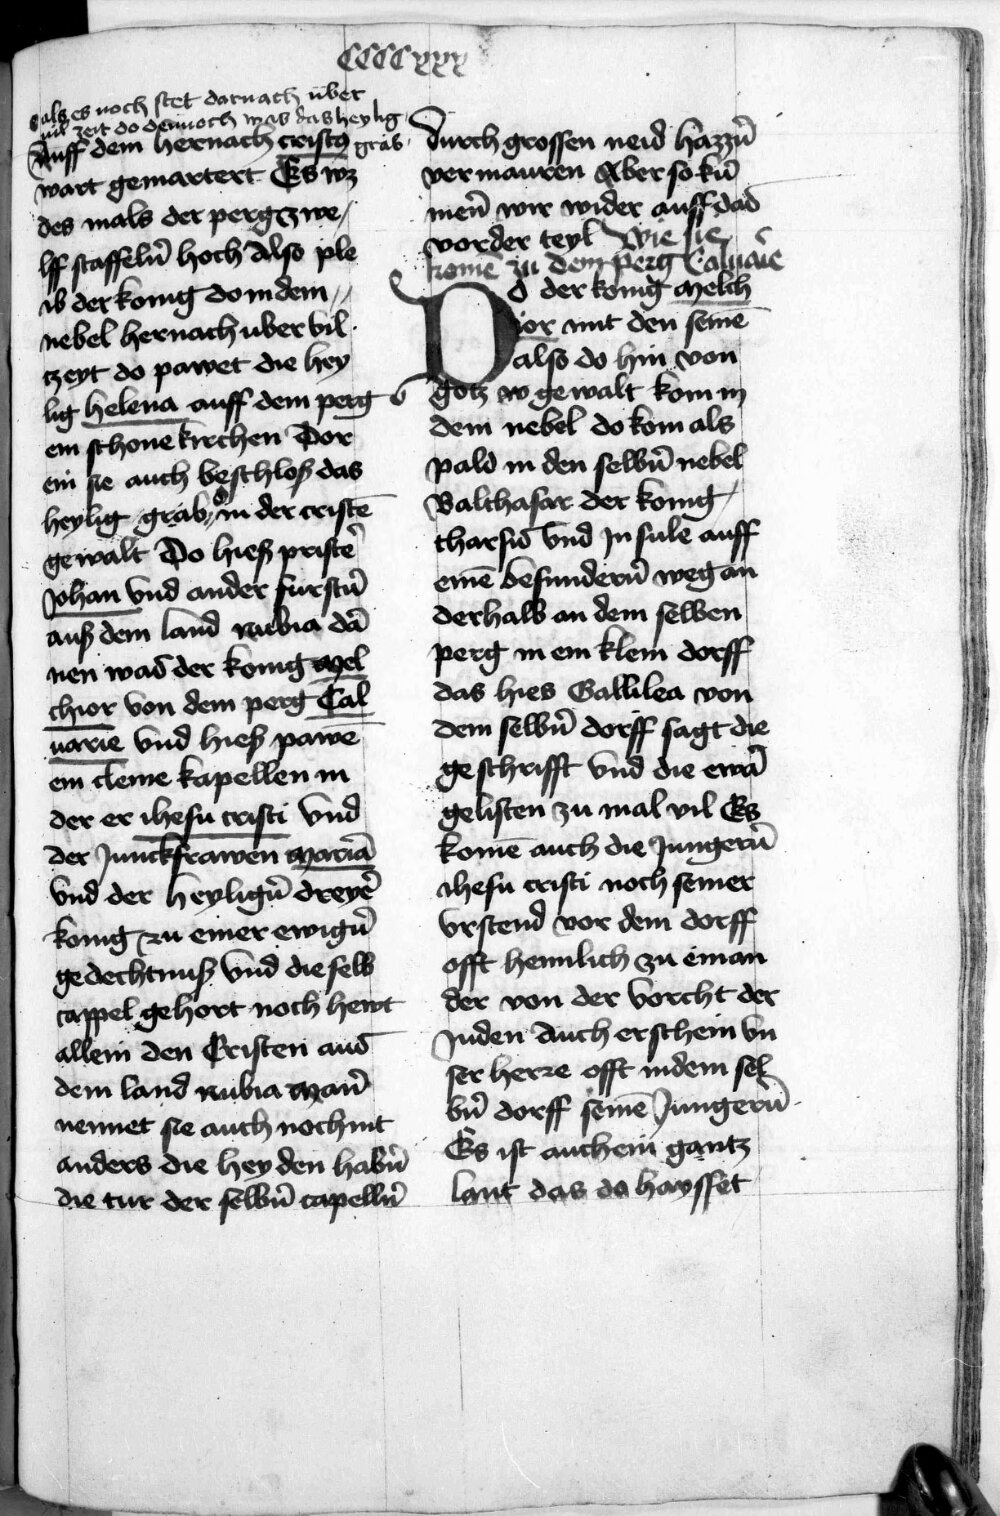 CCCCxxx
als es noch stet darnach uber
vil zeit do dennoch was das heylig
grab
Auff dem hernach cristo
wart gemartert Es wz
des mals der perg zwe/
lff staffeln̄ hoch Also ple
ib der konig do in dem //
nebel hernach uber vil
tzeyt do pawet die hey
lig helena auff dem perg
ein schone kirchen Dor
ein sie auch beschloß das
heylig grab in der cristē
gewalt Do hieß priste᷑
Johan vnd ander furstn̄
auß dem land nubia dā
nen was der konig mel
chior von dem perg Cal
uarie vnd hieß pawē
ein cleine kapellen in
der er ihesu cristi vnd
der Junckfrawen mariā
vnd der heylign̄ dreye᷑
konig zu einer ewign̄
gedechtnuß vnd die selb
cappel gehort noch hewt
allein den Cristen aus
dem land nubia Man̄
nennet sie auch noch nit
anders die heyden habn̄
die tur der selbn̄ capelln̄
durch grossen neid hazzn̄
vermauren Aber so kū
men̄ wir wider auff das
vorder teyl Wie sie
komē zu dem perg Caluarie
Do der konig Melch
ior mit den seinē
also do hin von
gotz gewalt kom in
dem nebel do kom als
pald in den selbn̄ nebel
Balthasar der konig /
tharsis vnd Jnsule auff
einē besundern̄ weg an
derhalb an dem selben
perg in ein klein dorff
das hies Gallilea von
dem selbn̄ dorff sagt die
geschrifft vnd die ewā
gelisten zu mal vil Es
komē auch die Jungern̄
ihesu cristi noch seiner
vrstend vor dem dorff
offt heimlich zu einan
der von der vorcht der
Juden Auch erschein vn
ser herre offt in dem sel
bn̄ dorff seinē Jungern̄
Es ist auch ein gantz
lant das do haysset